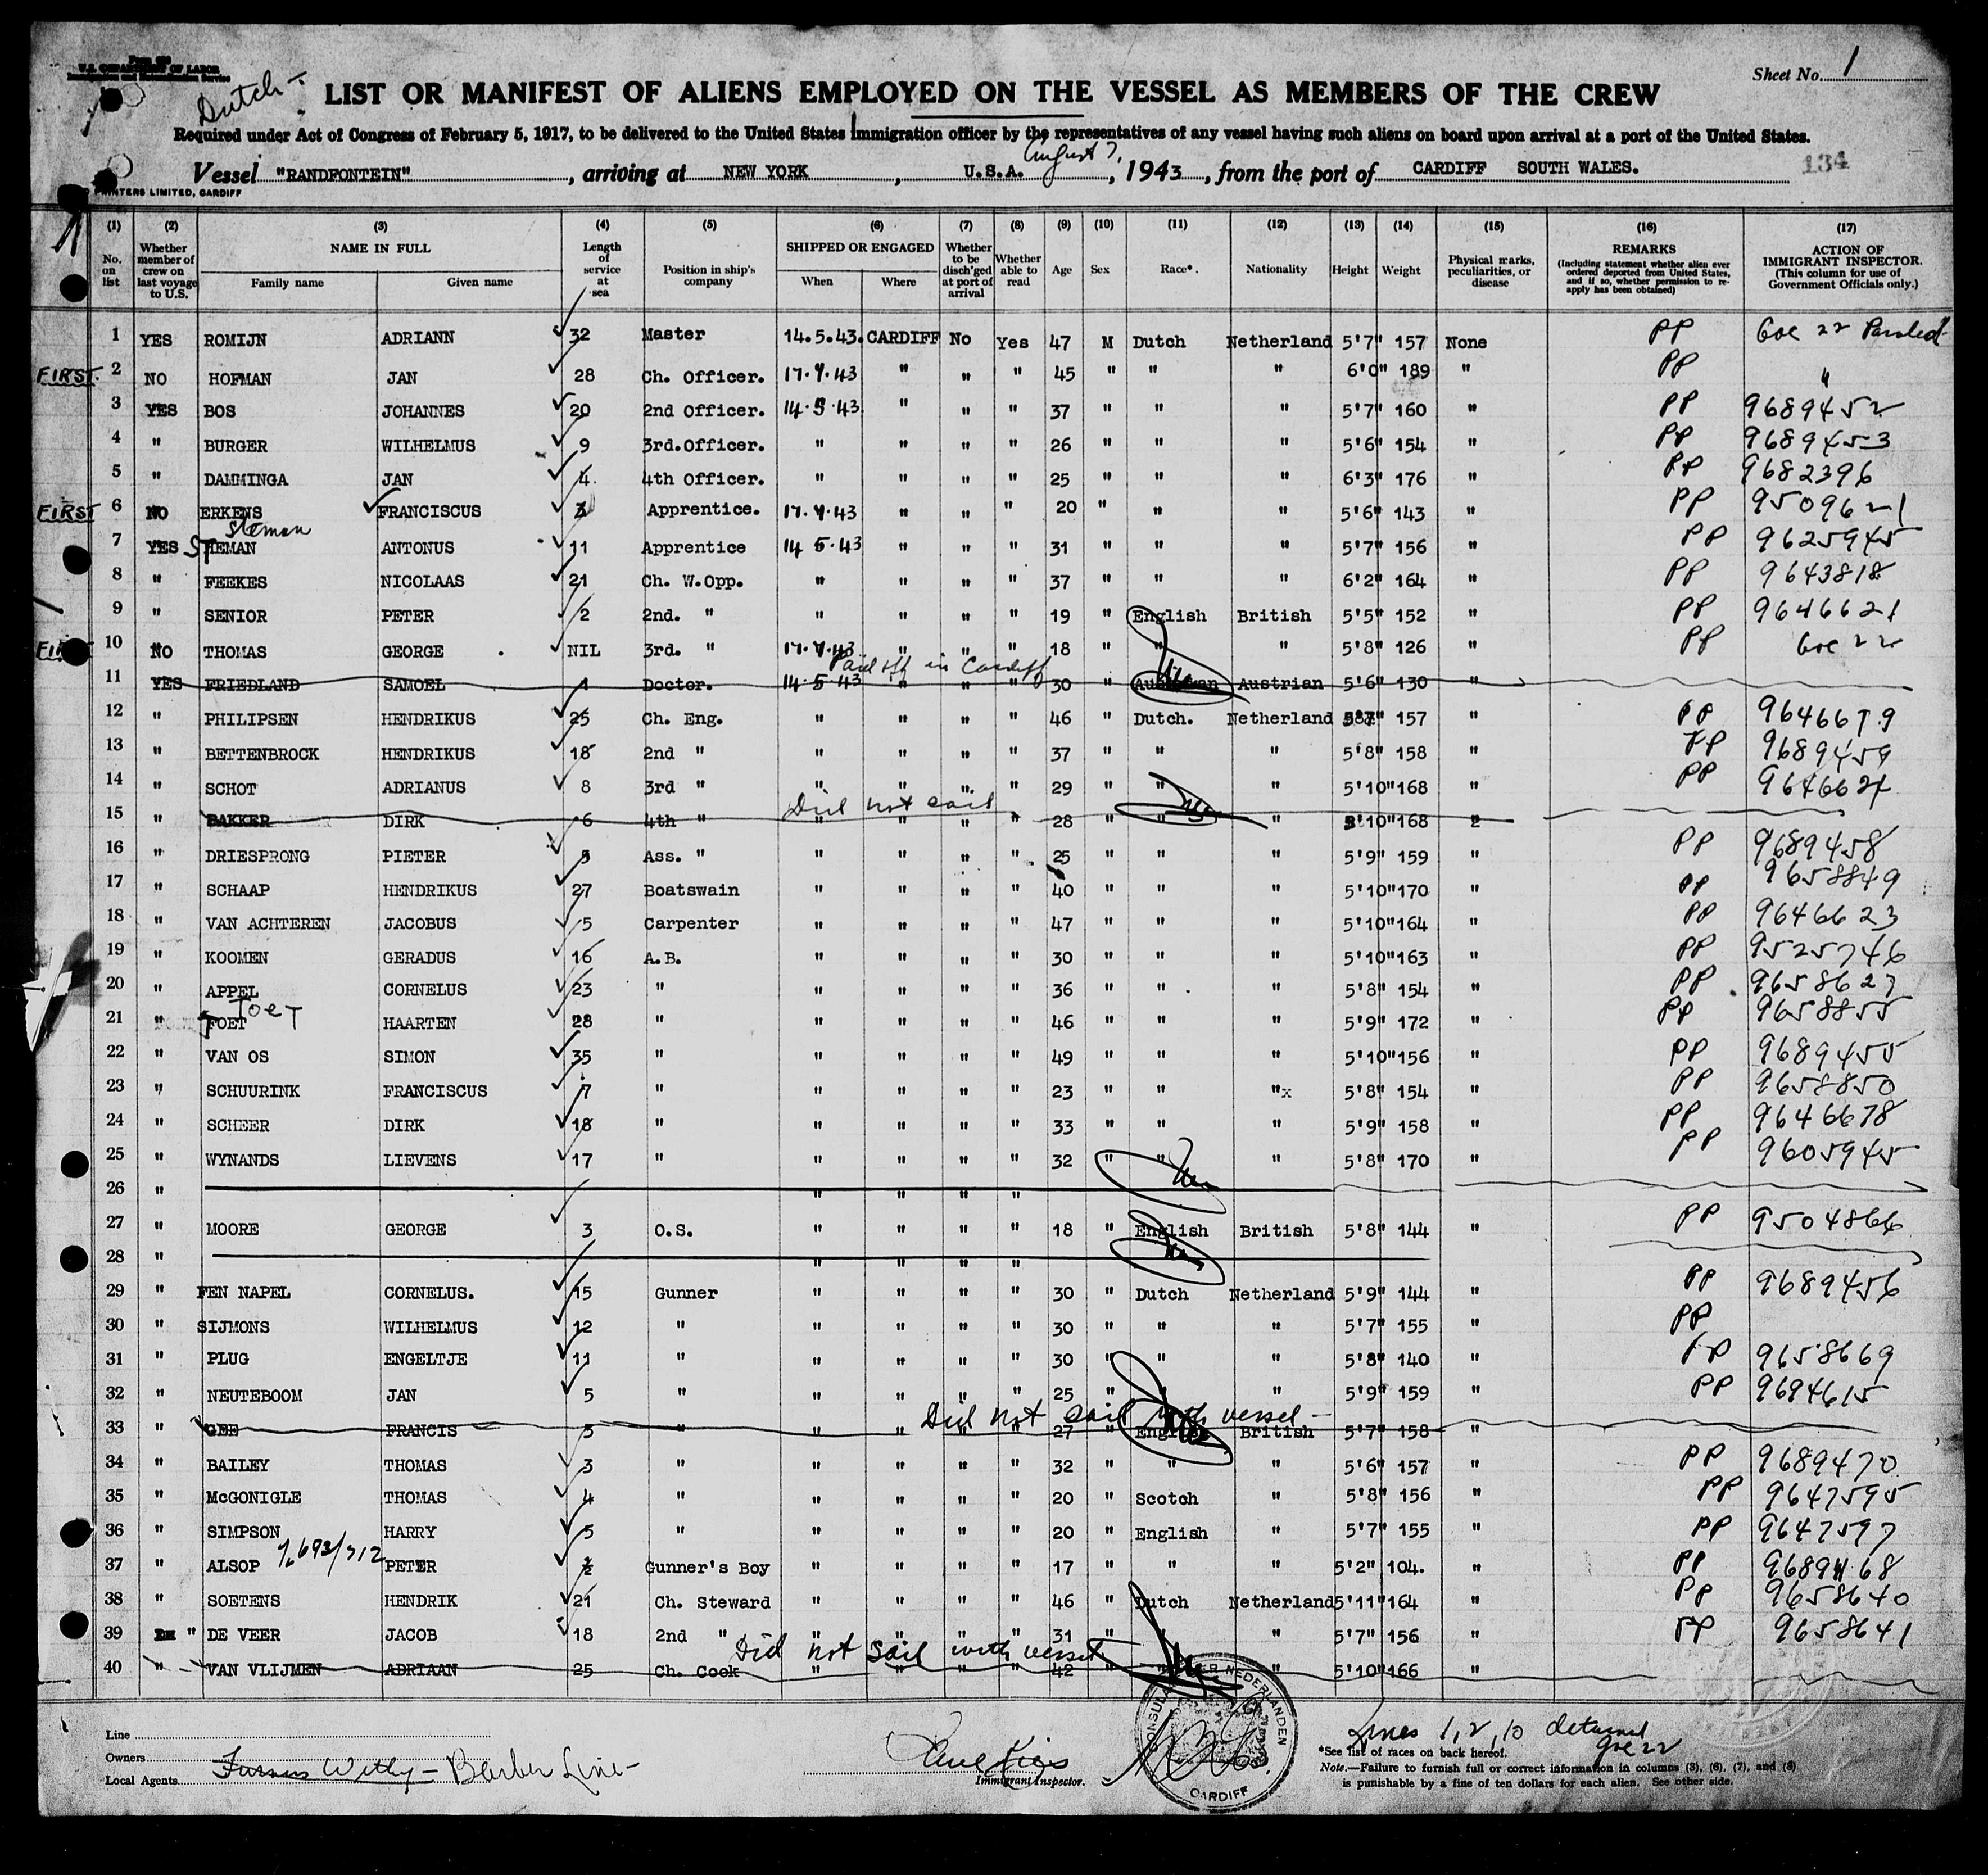 Form 689
U.S. DEPARTMENT OF LABOR
Immigration and Naturalization Service
Sheet No. 1
Dutch -
LIST OR MANIFEST OF ALIENS EMPLOYED ON THE VESSEL AS MEMBERS OF THE CREW
Required under Act of Congress of February 5, 1917, to be delivered to the United States Immigration officer by the representatives of any vessel having such aliens on board upon arrival at a port of the United States.
Vessel "RANDFONTEIN", arriving at NEW YORK, U.S.A. August 7, 1943, from the port of CARDIFF SOUTH WALES. 134
PRINTERS LIMITED, CARDIFF
(1) No. on list (2) Whether member of crew on last voyage to U.S. (3) NAME IN FULL Family name Given name (4) Length of service at sea (5) Position in ship's company (6) SHIPPED OR ENGAGED When Where (7) Whether to be disch'ged at port of arrival (8) Whether able to read (9) Age (10) Sex (11) Race*. (12) Nationality (13) Height (14) Weight (15) Physical marks, peculiarities, or disease (16) REMARKS (Including statement whether alien ever ordered deported from United States, and if so, whether permission to re-apply has been obtained) (17) ACTION OF IMMIGRANT INSPECTOR. (This column for use of Government Officials only.)
1 YES ROMIJN ADRIANN 32 Master 14.5.43. CARDIFF No Yes 47 M Dutch Netherland 5'7" 157 None PP
FIRST. 2 NO HOFMAN JAN 28 Ch. Officer. 17.7.43 " " " 45 " " " 6'0" 189 " PP "
3 YES BOS JOHANNES 20 2nd Officer. 14.5.43 " " " 37 " " " 5'7" 160 " PP 9689452
4 " BURGER WILHELMUS 9 3rd.Officer. " " " " 26 " " " 5'6" 154 " PP 9689453
5 " DAMMINGA JAN 4. 4th Officer. " " " " 25 " " " 6'3" 176 " PP 9682396
FIRST 6 NO ERKENS FRANCISCUS 3 Apprentice. 17.7.43 " " " 20 " " " 5'6" 143 " PP 9509621
Steman
7 YES STHEMAN ANTONUS 11 Apprentice 14 5.43 " " " 31 " " " 5'7" 156 " PP 9625945
8 " FEEKES NICOLAAS 21 Ch. W.Opp. " " " " 37 " " " 6'2" 164 " PP 9643818
9 " SENIOR PETER 2 2nd. " " " " " 19 " English British 5'5" 152 " PP 9646621
10 NO THOMAS GEORGE NIL 3rd. " 17.7.43 " " " 18 " " " 5'8" 126 " PP
Paid off in Cardiff
11 YES FRIEDLAND SAMOEL 1 Doctor. 14.5 43 " " " 30 " Austrian Austrian 5'6" 130 "
12 " PHILIPSEN HENDRIKUS 25 Ch. Eng. " " " " 46 " Dutch. Netherland 5'7" 157 " PP 9646679
13 " BETTENBROCK HENDRIKUS 18 2nd " " " " " 37 " " " 5'8" 158 " PP 9689459
14 " SCHOT ADRIANUS 8 3rd " " " " " 29 " " " 5'10" 168 " PP 9646624
Did not sail
15 " BAKKER DIRK 6 4th " " " " " 28 " " " 5'10" 168 2
16 " DRIESPRONG PIETER 5 Ass. " " " " " 25 " " " 5'9" 159 " PP 9689458
17 " SCHAAP HENDRIKUS 27 Boatswain " " " " 40 " " " 5'10" 170 " PP 9658849
18 " VAN ACHTEREN JACOBUS 5 Carpenter " " " " 47 " " " 5'10" 164 " PP 9646623
19 " KOOMEN GERADUS 16 A.B. " " " " 30 " " " 5'10" 163 " PP 9525746
20 " APPEL CORNELUS 23 " " " " " 36 " " " 5'8" 154 " PP 9658627
Toet
21 " FOET HAARTEN 28 " " " " " 46 " " " 5'9" 172 " PP 9658855
22 " VAN OS SIMON 35 " " " " " 49 " " " 5'10" 156 " PP 9689455
23 " SCHUURINK FRANCISCUS 7 " " " " " 23 " " "x 5'8" 154 " PP 9658850
24 " SCHEER DIRK 18 " " " " " 33 " " " 5'9" 158 " PP 9646678
25 " WYNANDS LIEVENS 17 " " " " " 32 " " " 5'8" 170 " PP 9605945
26 " " " " "
27 " MOORE GEORGE 3 O.S. " " " " 18 " English British 5'8" 144 " PP 9504866
28 " " " " "
29 " FEN NAPEL CORNELUS. 15 Gunner " " " " 30 " Dutch Netherland 5'9" 144 " PP 9689456
30 " SIJMONS WILHELMUS 12 " " " " " 30 " " " 5'7" 155 " PP
31 " PLUG ENGELTJE 11 " " " " " 30 " " " 5'8" 140 " PP 9658669
32 " NEUTEBOOM JAN 5 " " " " " 25 " " " 5'9" 159 " PP 9694615
Did not sail with vessel -
33 " GEE FRANCIS 5 " " " " " 27 English British 5'7" 158 "
34 " BAILEY THOMAS 3 " " " " " 32 " " " 5'6" 157 " PP 9689470
35 " McGONIGLE THOMAS 4 " " " " " 20 " Scotch " 5'8" 156 " PP 9647595
36 " SIMPSON HARRY 5 " " " " " 20 " English " 5'7" 155 " PP 9647597
37 " ALSOP PETER ½ Gunner's Boy " " " " 17 " " " 5'2" 104. " PP 9689468
38 " SOETENS HENDRIK 21 Ch. Steward " " " " 46 " Dutch Netherland 5'11" 164 " PP 9658640
39 " DE VEER JACOB 18 2nd " " " " " 31 " " " 5'7" 156 " PP 9658641
Did not sail with vessel
40 " VAN VLIJMEN ADRIAAN 25 Ch. Cook " " " " 42 " " " 5'10" 166 "
Line
Owners
Local Agents Furness Withy - Barber Line -
Immigrant Inspector.
CONSULAAT DER NEDERLANDEN CARDIFF
Lines 1, 2, 10 detained
*See list of races on back hereof.
Note.—Failure to furnish full or correct information in columns (3), (6), (7), and (8)
is punishable by a fine of ten dollars for each alien. See other side.